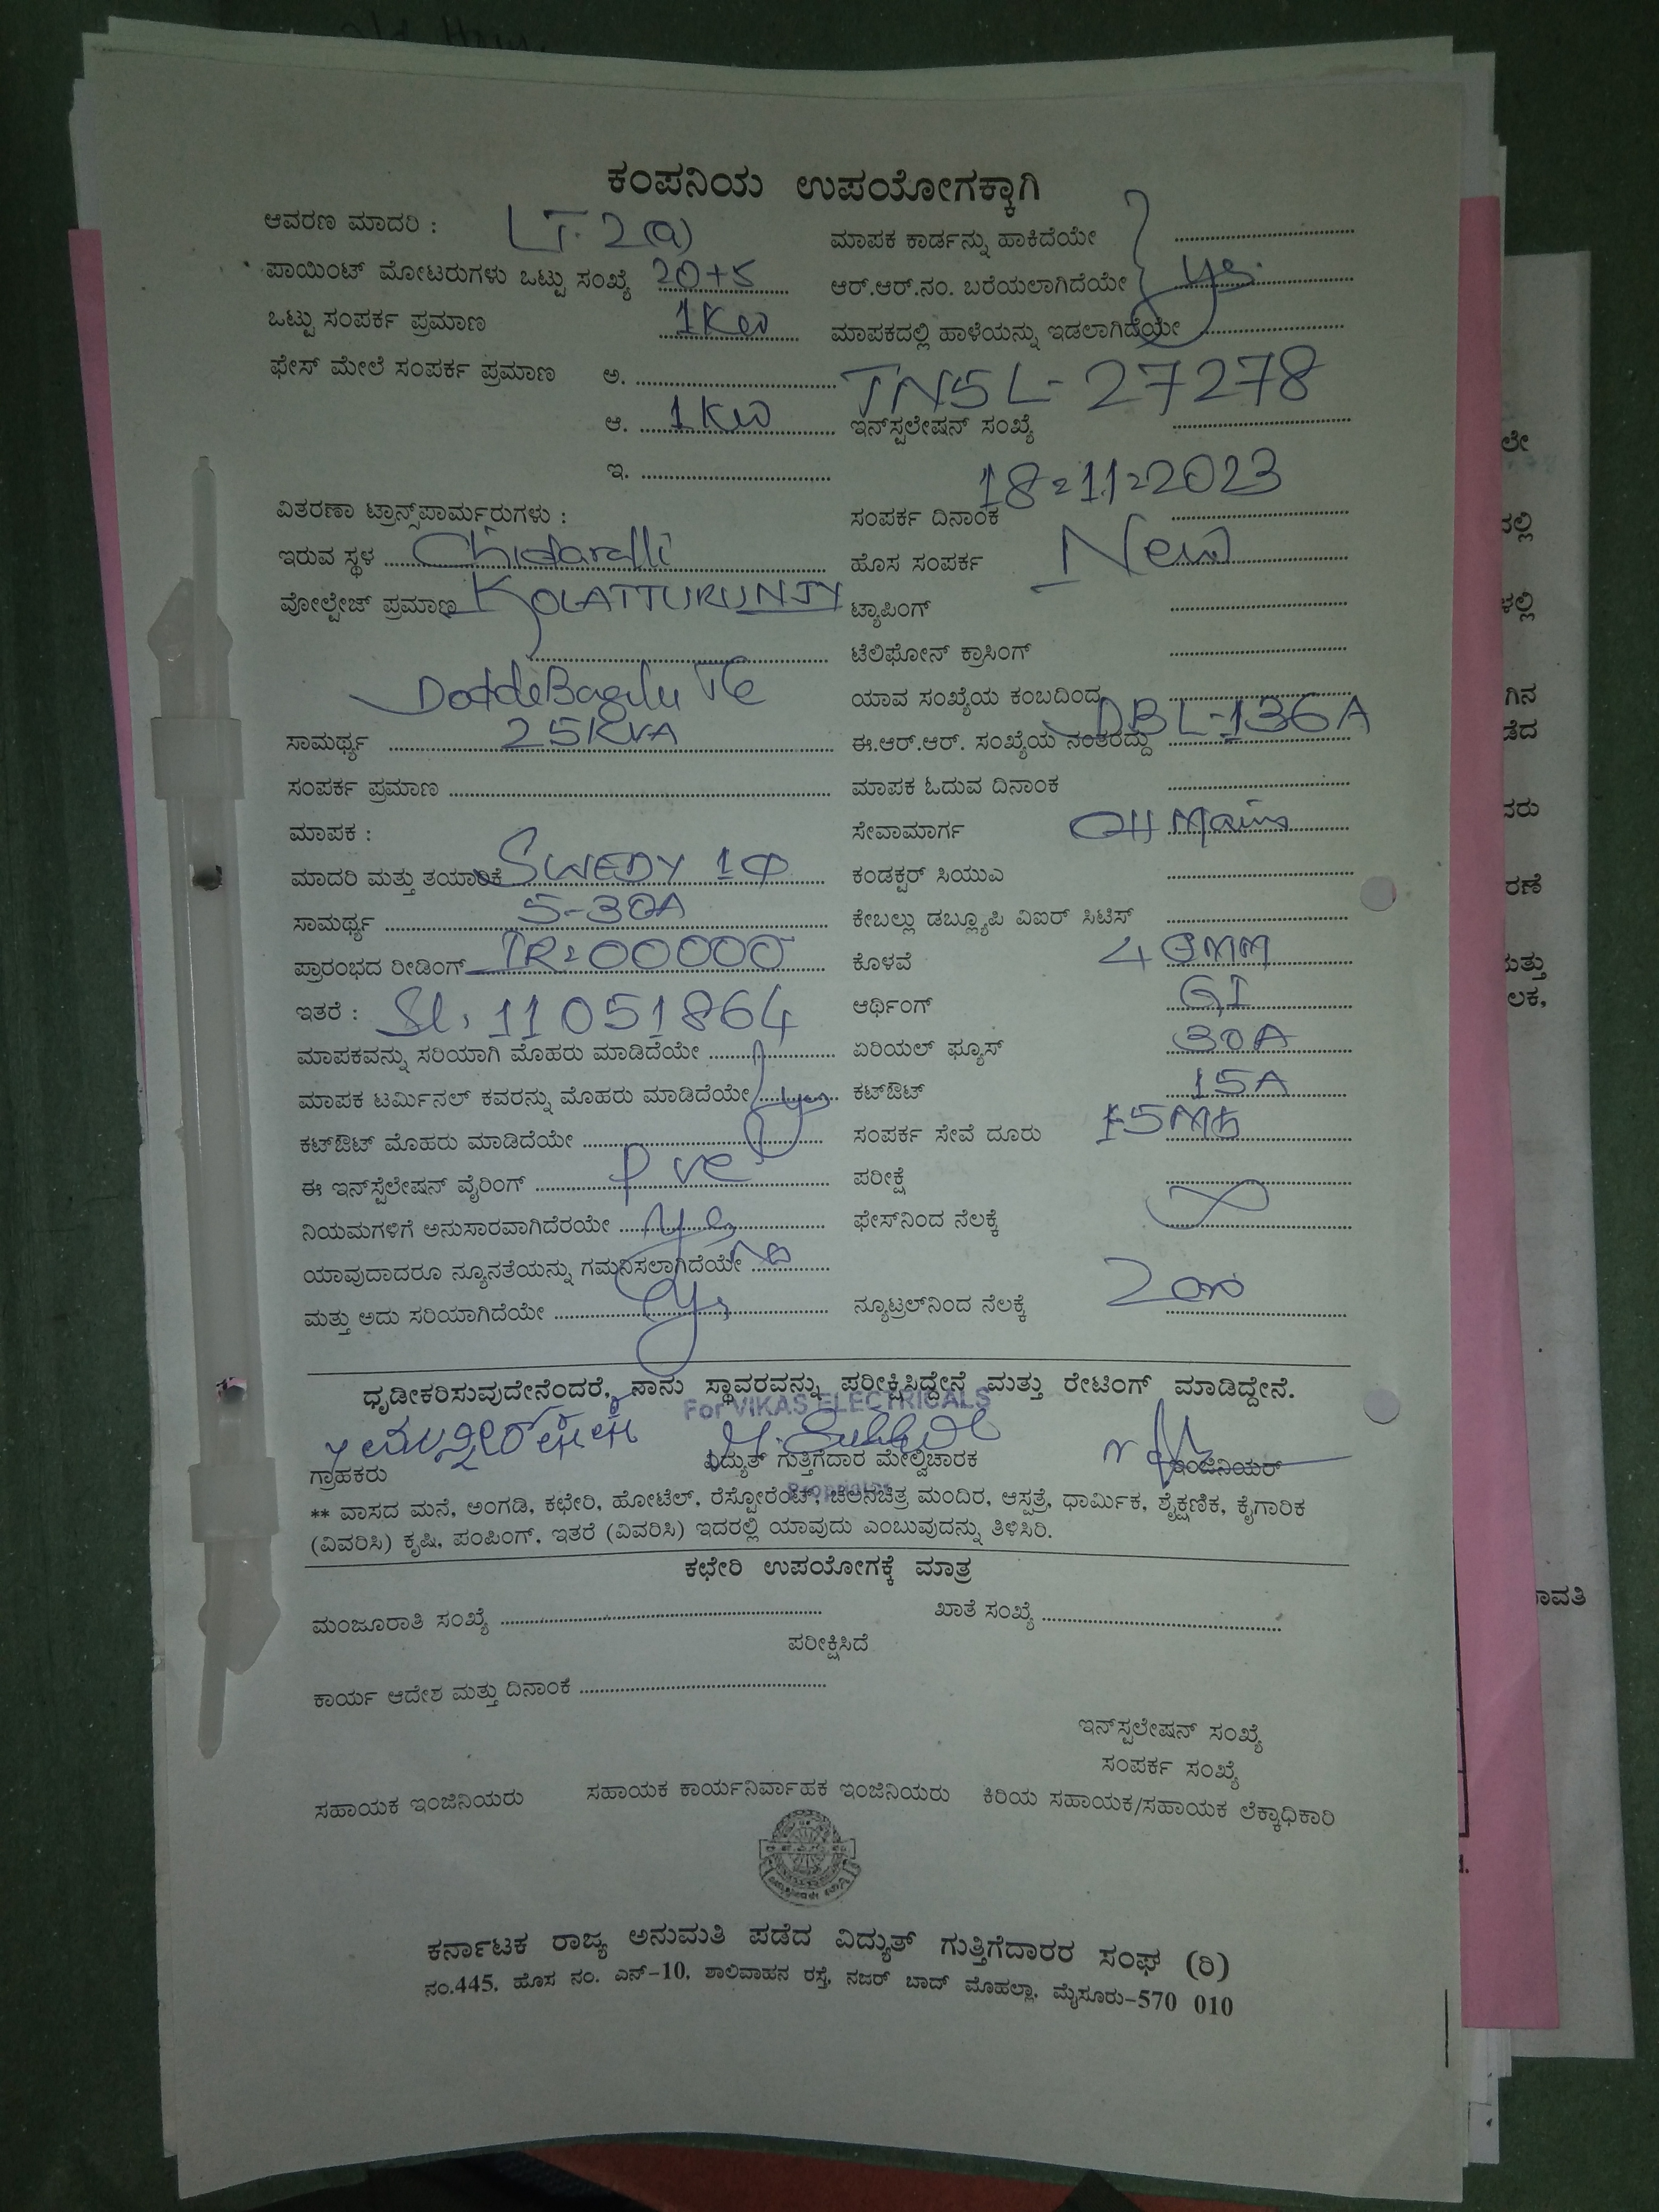 ಕಂಪನಿಯ ಉಪಯೋಗಕ್ಕಾಗಿ
ಆವರಣ ಮಾದರಿ : LT-2(a)
ಪಾಯಿಂಟ್ ಮೋಟರುಗಳು ಒಟ್ಟು ಸಂಖ್ಯೆ 20+5
ಒಟ್ಟು ಸಂಪರ್ಕ ಪ್ರಮಾಣ 1KW
ಫೇಸ್ ಮೇಲೆ ಸಂಪರ್ಕ ಪ್ರಮಾಣ ಅ.
ಆ. 1KW
ಇ.
ವಿತರಣಾ ಟ್ರಾನ್ಸ್‌ಪಾರ್ಮರುಗಳು :
ಇರುವ ಸ್ಥಳ Chidaralli
ವೋಲ್ಟೇಜ್ ಪ್ರಮಾಣ KOLATTURUNDY
DoddeBagilu TC
ಸಾಮರ್ಥ್ಯ 25KVA
ಸಂಪರ್ಕ ಪ್ರಮಾಣ
ಮಾಪಕ :
ಮಾದರಿ ಮತ್ತು ತಯಾರಿಕೆ SWEDY 1Φ
ಸಾಮರ್ಥ್ಯ 5-30A
ಪ್ರಾರಂಭದ ರೀಡಿಂಗ್ IR=00000
ಇತರೆ : Sl. 11051864
ಮಾಪಕವನ್ನು ಸರಿಯಾಗಿ ಮೊಹರು ಮಾಡಿದೆಯೇ
ಮಾಪಕ ಟರ್ಮಿನಲ್ ಕವರನ್ನು ಮೊಹರು ಮಾಡಿದೆಯೇ yes
ಕಟ್‌ಔಟ್ ಮೊಹರು ಮಾಡಿದೆಯೇ
ಈ ಇನ್‌ಸ್ಟಲೇಷನ್ ವೈರಿಂಗ್ PVC
ನಿಯಮಗಳಿಗೆ ಅನುಸಾರವಾಗಿದೆರಯೇ yes
ಯಾವುದಾದರೂ ನ್ಯೂನತೆಯನ್ನು ಗಮನಿಸಲಾಗಿದೆಯೇ No
ಮತ್ತು ಅದು ಸರಿಯಾಗಿದೆಯೇ yes
ಮಾಪಕ ಕಾರ್ಡನ್ನು ಹಾಕಿದೆಯೇ
ಆರ್.ಆರ್.ನಂ. ಬರೆಯಲಾಗಿದೆಯೇ yes
ಮಾಪಕದಲ್ಲಿ ಹಾಳೆಯನ್ನು ಇಡಲಾಗಿದೆಯೇ
TNSL-27278
ಇನ್‌ಸ್ಟಲೇಷನ್ ಸಂಖ್ಯೆ
18-11-2023
ಸಂಪರ್ಕ ದಿನಾಂಕ
ಹೊಸ ಸಂಪರ್ಕ New
ಟ್ಯಾಪಿಂಗ್
ಟೆಲಿಫೋನ್ ಕ್ರಾಸಿಂಗ್
ಯಾವ ಸಂಖ್ಯೆಯ ಕಂಬದಿಂದ
ಈ.ಆರ್.ಆರ್. ಸಂಖ್ಯೆಯ ನಂತರದ್ದು DBL-136A
ಮಾಪಕ ಓದುವ ದಿನಾಂಕ
ಸೇವಾಮಾರ್ಗ OH Mains
ಕಂಡಕ್ಟರ್ ಸಿಯುಎ
ಕೇಬಲ್ಲು ಡಬ್ಲ್ಯೂಪಿ ವಿಐರ್ ಸಿಟಿಸ್
ಕೊಳವೆ 40MM
ಆರ್ಥಿಂಗ್ GI
ಏರಿಯಲ್ ಫ್ಯೂಸ್ 30A
ಕಟ್‌ಔಟ್ 15A
ಸಂಪರ್ಕ ಸೇವೆ ದೂರು 15Mts
ಪರೀಕ್ಷೆ
ಫೇಸ್‌ನಿಂದ ನೆಲಕ್ಕೆ ∞
ನ್ಯೂಟ್ರಲ್‌ನಿಂದ ನೆಲಕ್ಕೆ Zero
ಧೃಡೀಕರಿಸುವುದೇನೆಂದರೆ, ನಾನು ಸ್ಥಾವರವನ್ನು ಪರೀಕ್ಷಿಸಿದ್ದೇನೆ ಮತ್ತು ರೇಟಿಂಗ್ ಮಾಡಿದ್ದೇನೆ.
For VIKAS ELECTRICALS
ಗ್ರಾಹಕರು ವಿದ್ಯುತ್ ಗುತ್ತಿಗೆದಾರ ಮೇಲ್ವಿಚಾರಕ ಇಂಜಿನಿಯರ್
Proprietor
** ವಾಸದ ಮನೆ, ಅಂಗಡಿ, ಕಛೇರಿ, ಹೋಟೆಲ್, ರೆಸ್ಟೋರೆಂಟ್, ಚಲನಚಿತ್ರ ಮಂದಿರ, ಆಸ್ಪತ್ರೆ, ಧಾರ್ಮಿಕ, ಶೈಕ್ಷಣಿಕ, ಕೈಗಾರಿಕ
(ವಿವರಿಸಿ) ಕೃಷಿ, ಪಂಪಿಂಗ್, ಇತರೆ (ವಿವರಿಸಿ) ಇದರಲ್ಲಿ ಯಾವುದು ಎಂಬುವುದನ್ನು ತಿಳಿಸಿರಿ.
ಕಛೇರಿ ಉಪಯೋಗಕ್ಕೆ ಮಾತ್ರ
ಮಂಜೂರಾತಿ ಸಂಖ್ಯೆ ಖಾತೆ ಸಂಖ್ಯೆ
ಪರೀಕ್ಷಿಸಿದೆ
ಕಾರ್ಯ ಆದೇಶ ಮತ್ತು ದಿನಾಂಕ
ಇನ್‌ಸ್ಟಲೇಷನ್ ಸಂಖ್ಯೆ
ಸಂಪರ್ಕ ಸಂಖ್ಯೆ
ಸಹಾಯಕ ಇಂಜಿನಿಯರು ಸಹಾಯಕ ಕಾರ್ಯನಿರ್ವಾಹಕ ಇಂಜಿನಿಯರು ಕಿರಿಯ ಸಹಾಯಕ/ಸಹಾಯಕ ಲೆಕ್ಕಾಧಿಕಾರಿ
ಕರ್ನಾಟಕ ರಾಜ್ಯ ಅನುಮತಿ ಪಡೆದ ವಿದ್ಯುತ್ ಗುತ್ತಿಗೆದಾರರ ಸಂಘ (ರಿ)
ನಂ.445, ಹೊಸ ನಂ. ಎನ್-10, ಶಾಲಿವಾಹನ ರಸ್ತೆ, ನಜರ್ ಬಾದ್ ಮೊಹಲ್ಲಾ, ಮೈಸೂರು-570 010